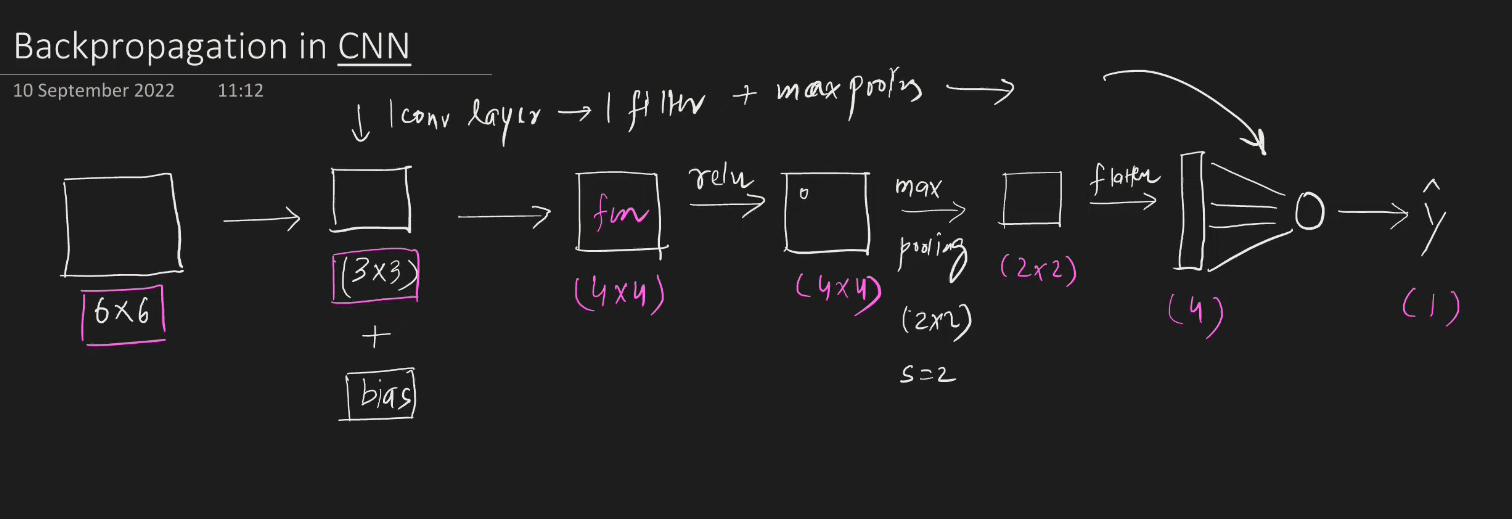 Backpropagation in CNN
10 September 2022 11:12
↓ 1 conv layer → 1 filter + max pooling →
6×6
(3×3)
+
bias
fm
(4×4)
relu
(4×4)
max
pooling
(2×2)
s=2
(2×2)
flatten
(4)
ŷ
(1)